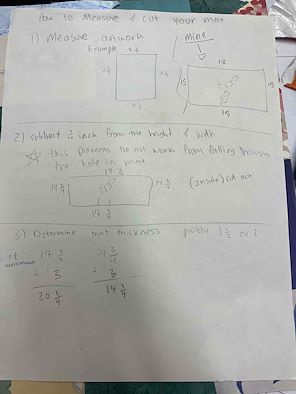 How to Measure & cut your mat
1) Measure artwork
Mine
Example
18
15
15
18
2) subtract ¼ inch from the height & width
☆ this prevents the art work from falling through
the hole in mat
17 ¾
14 ¾
14 ¾
(Inside) cut out
17 ¾
3) Determine mat thickness probly 1 ½ or 2
17 ¾
14 ¾
+ 3
+ 3
20 ¾
17 ¾